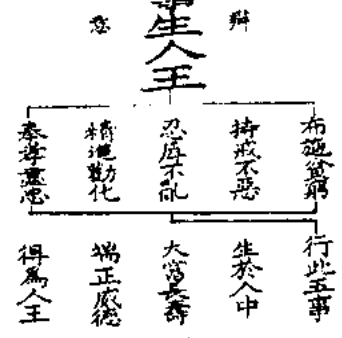 辯
事生人王
意
布施貧窮
持戒不惡
忍辱不亂
精進勸化
奉孝盡忠
行此五事
生於人中
大富長壽
端正威德
得爲人王